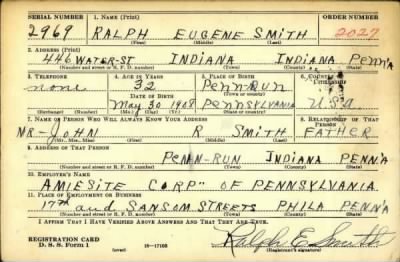 SERIAL NUMBER 1. NAME (Print) ORDER NUMBER
2969 RALPH EUGENE SMITH 2027
(First) (Middle) (Last)
2. ADDRESS (Print)
446 WATER-ST INDIANA INDIANA PENN'A
(Number and street or R. F. D. number) (Town) (County) (State)
3. TELEPHONE 4. AGE IN YEARS 5. PLACE OF BIRTH 6. COUNTRY OF
none 32 PENN-RUN
DATE OF BIRTH (Town or county)
May 30 1908 PENNSYLVANIA U.S.A
(Exchange) (Number) (Mo.) (Day) (Yr.) (State or country)
7. NAME OF PERSON WHO WILL ALWAYS KNOW YOUR ADDRESS 8. RELATIONSHIP OF THAT PERSON
MR-JOHN R SMITH FATHER
(Mr., Mrs., Miss) (First) (Middle) (Last)
9. ADDRESS OF THAT PERSON
PENN-RUN INDIANA PENN'A
(Number and street or R. F. D. number) (Town) (County) (State)
10. EMPLOYER'S NAME
AMIESITE CORP" OF PENNSYLVANIA
11. PLACE OF EMPLOYMENT OR BUSINESS
17th and SANSOM STREETS PHILA PENN'A
(Number and street or R. F. D. number) (Town) (County) (State)
I AFFIRM THAT I HAVE VERIFIED ABOVE ANSWERS AND THAT THEY ARE TRUE.
REGISTRATION CARD Ralph E Smith
D. S. S. Form 1 (over) 16-17105 (Registrant's signature)